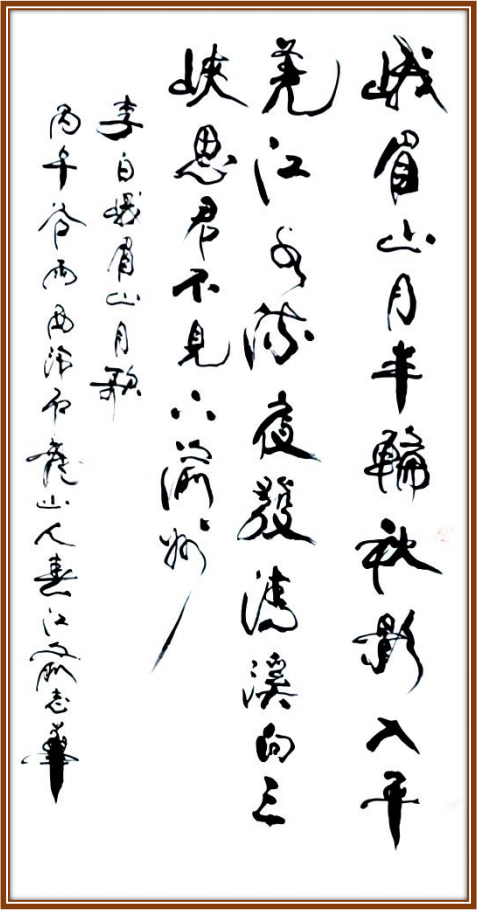 峨眉山月半輪秋影入平
羌江水流夜發清溪向三
峽思君不見下渝州
李白峨眉山月歌
丙午谷雨 山人 江